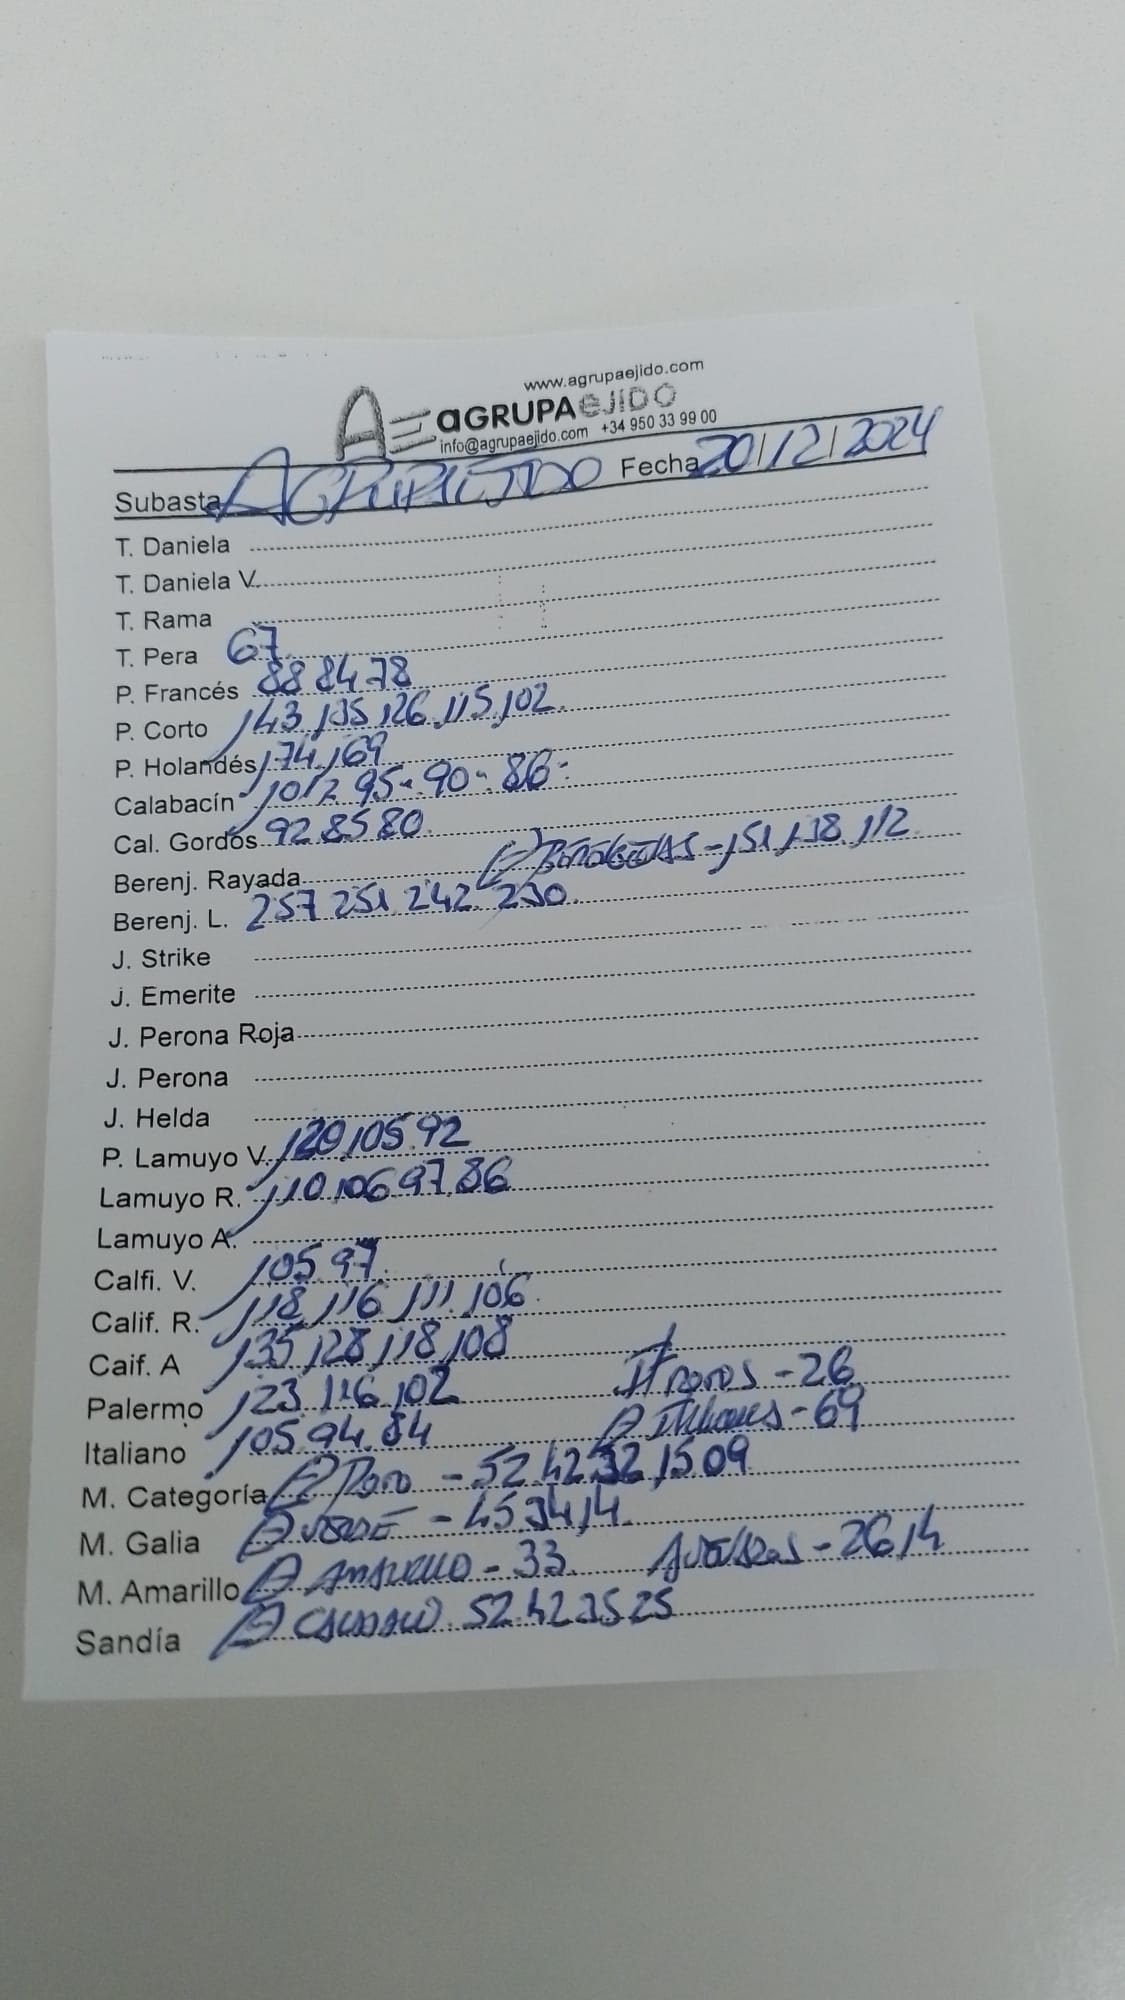 www.agrupaejido.com
AE aGRUPAEJIDO
info@agrupaejido.com +34 950 33 99 00
Subasta AGRUPAEJIDO Fecha 20/12/2024
T. Daniela
T. Daniela V.
T. Rama
T. Pera 67
P. Francés 88 84 78
P. Corto 143 135 126 115 102
P. Holandés 174 169
Calabacín 101/2 95- 90- 86-
Cal. Gordos 92 85 80
Berenj. Rayada - 151 138 112
Berenj. L. 257 251 242 230
J. Strike
J. Emerite
J. Perona Roja
J. Perona
J. Helda
P. Lamuyo V. 120 105 92
Lamuyo R. 110 106 97 86
Lamuyo A.
Calfi. V. 105 97
Calif. R. 118 116 111 106
Caif. A 135 128 118 108
Palermo 123 116 102 - 26
Italiano 105 94 84 - 69
M. Categoría Rojo - 52 42 32 15 09
M. Galia VERDE - 45 34 14
M. Amarillo AMARILLO - 33 - 26 14
Sandía 52 42 35 25